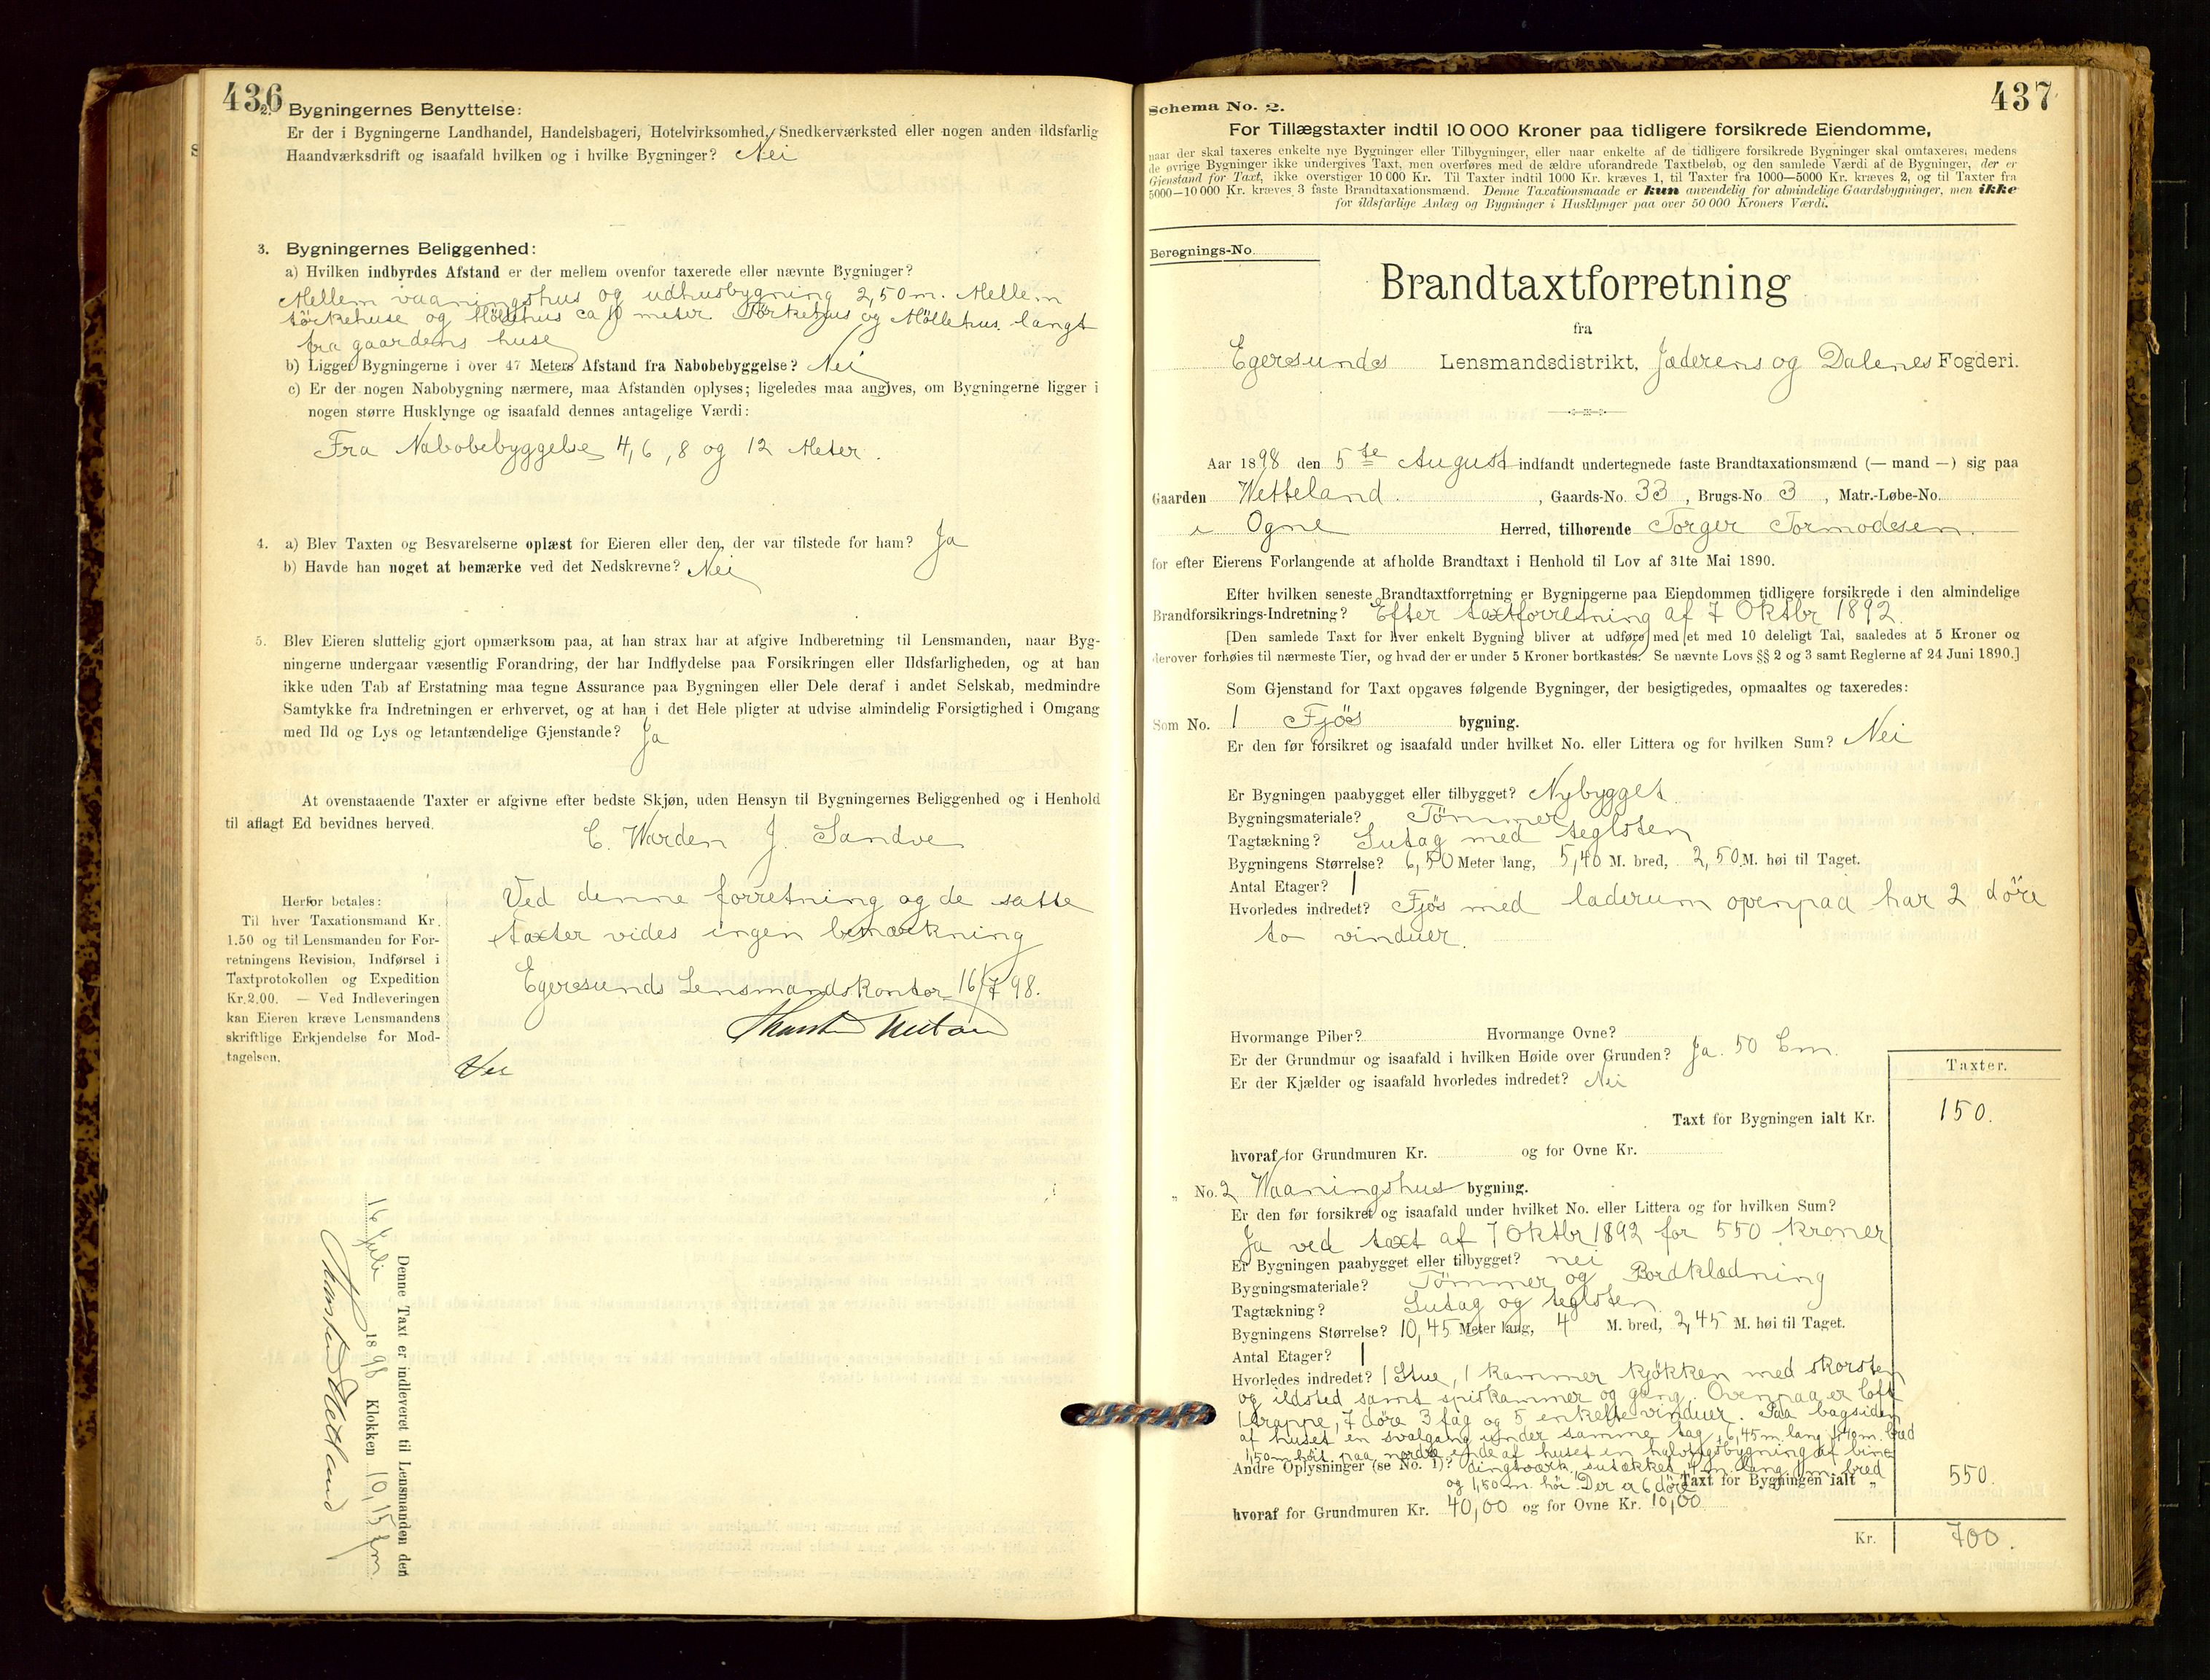 436
2. Bygningernes Benyttelse:
Er der i Bygningerne Landhandel, Handelsbageri, Hotelvirksomhed, Snedkerværksted eller nogen anden ildsfarlig
Haandværksdrift og isaafald hvilken og i hvilke Bygninger? Nei
3. Bygningernes Beliggenhed:
a) Hvilken indbyrdes Afstand er der mellem ovenfor taxerede eller nævnte Bygninger?
Mellem vaaningshus og udhusbygning 2,50 m. Mellem
törkehuse og Möllehus ca 10 meter Törkehus og Möllehus langt
fra gaardens huse
b) Ligger Bygningerne i over 47 Meters Afstand fra Nabobebyggelse? Nei
c) Er der nogen Nabobygning nærmere, maa Afstanden oplyses; ligeledes maa angives, om Bygningerne ligger i
nogen større Husklynge og isaafald dennes antagelige Værdi:
Fra Nabobebyggelse 4, 6, 8 og 12 Meter.
4. a) Blev Taxten og Besvarelserne oplæst for Eieren eller den, der var tilstede for ham? Ja
b) Havde han noget at bemærke ved det Nedskrevne? Nei
5. Blev Eieren sluttelig gjort opmærksom paa, at han strax har at afgive Indberetning til Lensmanden, naar Byg-
ningerne undergaar væsentlig Forandring, der har Indflydelse paa Forsikringen eller Ildsfarligheden, og at han
ikke uden Tab af Erstatning maa tegne Assurance paa Bygningen eller Dele deraf i andet Selskab, medmindre
Samtykke fra Indretningen er erhvervet, og at han i det Hele pligter at udvise almindelig Forsigtighed i Omgang
med Ild og Lys og letantændelige Gjenstande? Ja
At ovenstaaende Taxter er afgivne efter bedste Skjøn, uden Hensyn til Bygningernes Beliggenhed og i Henhold
til aflagt Ed bevidnes herved.
C. Warden J. Sandve
Herfor betales:
Til hver Taxationsmand Kr.
1.50 og til Lensmanden for For-
retningens Revision, Indførsel i
Taxtprotokollen og Expedition
Kr.2.00. — Ved Indleveringen
kan Eieren kræve Lensmandens
skriftlige Erkjendelse for Mod-
tagelsen.
Ved denne forretning og de satte
taxter vides ingen bemærkning
Egersunds Lensmandskontor 16/7 98.
Denne Taxt er indleveret til Lensmanden den
16 Juli 1898 Klokken 10,15 fm.
437
Schema No. 2.
For Tillægstaxter indtil 10 000 Kroner paa tidligere forsikrede Eiendomme,
naar der skal taxeres enkelte nye Bygninger eller Tilbygninger, eller naar enkelte af de tidligere forsikrede Bygninger skal omtaxeres; medens
de øvrige Bygninger ikke undergives Taxt, men overføres med de ældre uforandrede Taxtbeløb, og den samlede Værdi af de Bygninger, der er
Gjenstand for Taxt, ikke overstiger 10 000 Kr. Til Taxter indtil 1000 Kr. kræves 1, til Taxter fra 1000—5000 Kr. kræves 2, og til Taxter fra
5000—10 000 Kr. kræves 3 faste Brandtaxationsmænd. Denne Taxationsmaade er kun anvendelig for almindelige Gaardsbygninger, men ikke
for ildsfarlige Anlæg og Bygninger i Husklynger paa over 50 000 Kroners Værdi.
Beregnings-No.
Brandtaxtforretning
fra
Egersunds Lensmandsdistrikt, Jæderens og Dalenes Fogderi.
Aar 1898 den 5te August indfandt undertegnede faste Brandtaxationsmænd (— mand —) sig paa
Gaarden Wetteland, Gaards-No. 33, Brugs-No. 3, Matr.-Løbe-No.
i Ogne Herred, tilhørende Torger Tormodsen.
for efter Eierens Forlangende at afholde Brandtaxt i Henhold til Lov af 31te Mai 1890.
Efter hvilken seneste Brandtaxtforretning er Bygningerne paa Eiendommen tidligere forsikrede i den almindelige
Brandforsikrings-Indretning? Efter taxtforretning af 7 Oktbr 1892.
[Den samlede Taxt for hver enkelt Bygning bliver at udføre med et med 10 deleligt Tal, saaledes at 5 Kroner og
derover forhøies til nærmeste Tier, og hvad der er under 5 Kroner bortkastes. Se nævnte Lovs §§ 2 og 3 samt Reglerne af 24 Juni 1890.]
Som Gjenstand for Taxt opgaves følgende Bygninger, der besigtigedes, opmaaltes og taxeredes:
Som No. 1 Fjös bygning.
Er den før forsikret og isaafald under hvilket No. eller Littera og for hvilken Sum? Nei
Er Bygningen paabygget eller tilbygget? Nybygget
Bygningsmateriale? Tömmer
Tagtækning? Sutag med teglsten
Bygningens Størrelse? 6,50 Meter lang, 5,40 M. bred, 2,50 M. høi til Taget.
Antal Etager? 1
Hvorledes indredet? Fjös med laderum ovenpaa har 2 döre
to vinduer.
Hvormange Piber? Hvormange Ovne?
Er der Grundmur og isaafald i hvilken Høide over Grunden? Ja. 50 Cm.
Er der Kjælder og isaafald hvorledes indredet? Nei
Taxter.
Taxt for Bygningen ialt Kr. 150.
hvoraf for Grundmuren Kr. og for Ovne Kr.
„ No. 2 Waaningshus bygning.
Er den før forsikret og isaafald under hvilket No. eller Littera og for hvilken Sum?
Ja ved taxt af 7 Oktbr 1892 for 550 kroner
Er Bygningen paabygget eller tilbygget? nei
Bygningsmateriale? Tömmer og Bordklædning
Tagtækning? Sutag og teglsten.
Bygningens Størrelse? 10,45 Meter lang, 4 M. bred, 2,45 M. høi til Taget.
Antal Etager? 1
Hvorledes indredet? 1 Stue, 1 kammer kjökken med skorsten
og ildsted samt spiskammer og gang. Ovenpaa er loft
1 trappe, 7 döre 3 fag og 5 enkelte vinduer. Paa bagsiden
af huset en svalgang under samme tag, 6,45 m. lang 1,40 m. bred
1,50 m höit paa nordre ende af huset en halvtagsbygning af bin-
Andre Oplysninger (se No. 1)? dingsværk, sutækket 4 m lang m. bred
og 1,80 m. höi. Der er 6 döre Taxt for Bygningen ialt „ 550.
hvoraf for Grundmuren Kr. 40,00 og for Ovne Kr. 10,00
Kr. 700.